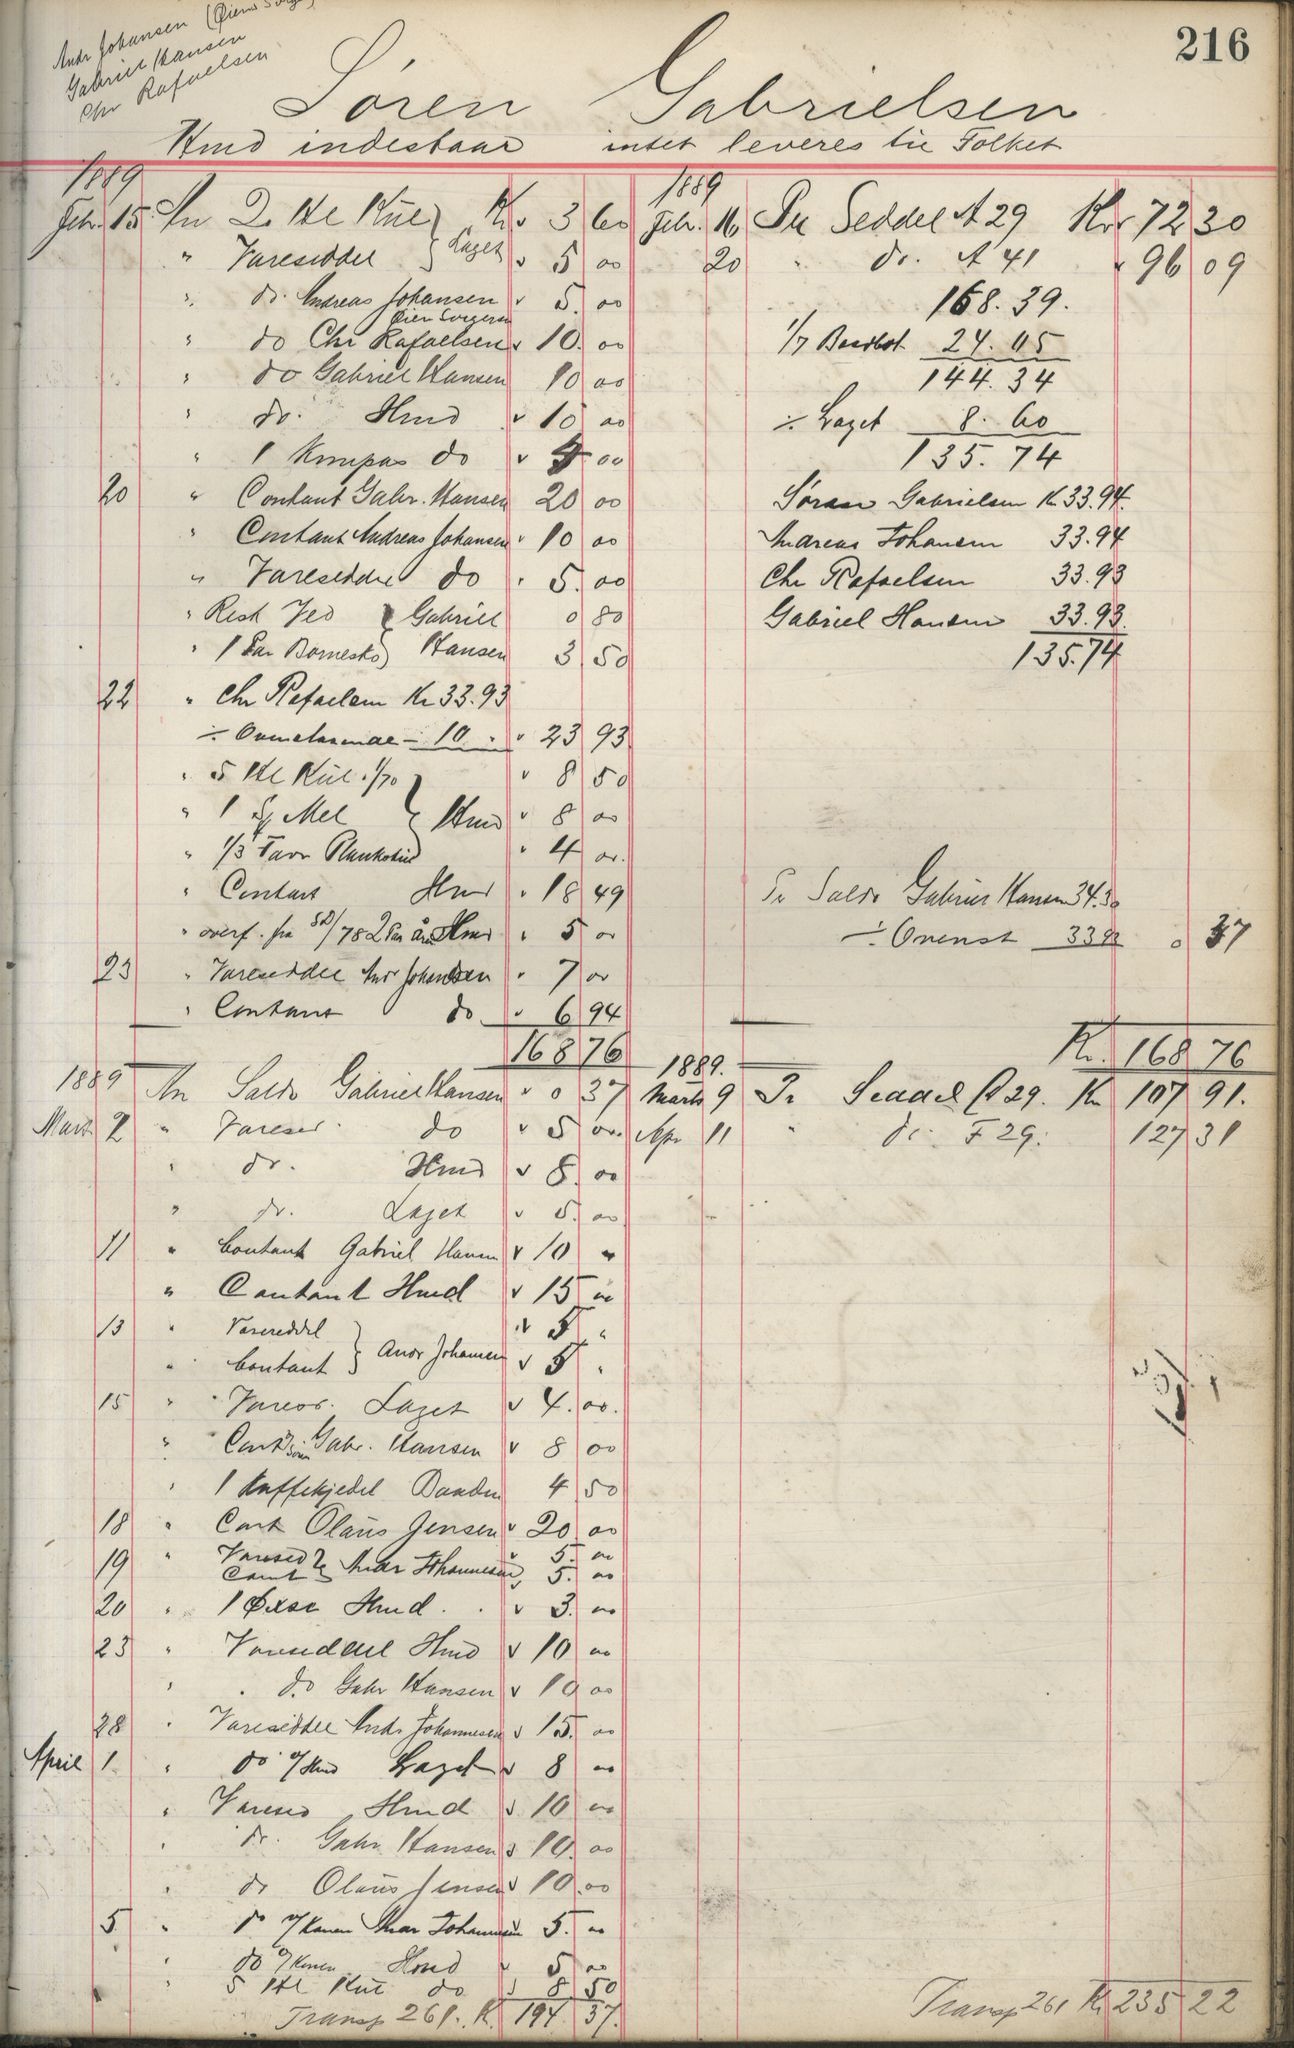 216
Andr Johansen (Øien
Gabriel Hansen
Chr Rafaelsen
Sören Gabrielsen
Hmd indestaar intet leveres til Folket
1889
Febr. 15 An 2 Hl Kul } Kr 3 60
" Vareseddel } Laget 5 00
" do. Andreas Johansen 5. 00
" do Chr Rafaelsen 10. 00
" do Gabriel Hansen 10 00
" do. Hmd 10 00
" 1 Kompas do 00
20 " Contant Gabr. Hansen 20 00
" Contant Andreas Johansen 10 00
" Vareseddel do 5. 00
" Rest Ved } Gabriel 0 80
" 1 Par Bornesko } Hansen 3 50
22 " Chr Rafaelsen Kr 33.93
÷ 10. 23 93
" 5 Hl Kul 1/70 } 8 50
" 1 Mel } Hmd 8 00
" 1/3 Favn 4 00.
" Contant Hmd 18 49
" overf. fra SD/78 2 Par Hmd 5 00
23 " Vareseddel Andr Johansen 7 00
" Contant do 6 94
168 76
1889
Febr. 16 Pr Seddel A 29 Kr 72 30
20 " do. A 41 96 09
168.39.
1/7 24.05
144.34
÷ Laget 8.60
135.74
Søren Gabrielsen Kr 33.94.
Andreas Johansen 33.94
Chr Rafaelsen 33.93
Gabriel Hansen 33.93.
135.74
Pr Saldo Gabriel Hansen 34.30
÷ Ovenst 33 93 0 37
Kr. 168 76
1889 An Saldo Gabriel Hansen 0 37
Mart 2 " Varesed. do 5 00.
" do. Hmd 8. 00
" do. Laget 5. 00
11 " Contant Gabriel Hansen 10 "
" Contant Hmd 15 00
13 " Vareseddel } 5 "
" Contant } Andr Johansen 5 "
15 " Laget 4. 00.
" Cont Gabr. Hansen 8 00
" 1 Kaffekjedel Baaden 4 50
18 " Cont Olaus Jensen 20 00
19 " Varesed 5. 00
Cont } Andr Johannesen 5. 00
20 " 1 Øxe Hmd. 3. 00
23 " Vareseddel Hmd 10 00
" do Gabr Hansen 10 00
28 " Vareseddel Andr Johannesen 15. 00
April 1 " do v/Hmd Laget 8 00
" Varesed Hmd 10 00
" do. Gabr Hansen 10. 00
" do Olaus Jensen 10. 00
5 " do v/Konen Andr Johannesen 5. 00
" do v/Konen Hmd 5 00
" 5 Hl Kul do 8 50
Transp 261. K. 194 37.
1889.
Marts 9 Pr Seddel C 29. Kr 107 91.
Apr 11 " do. F 29. 127 31
Transp 261 Kr 235 22